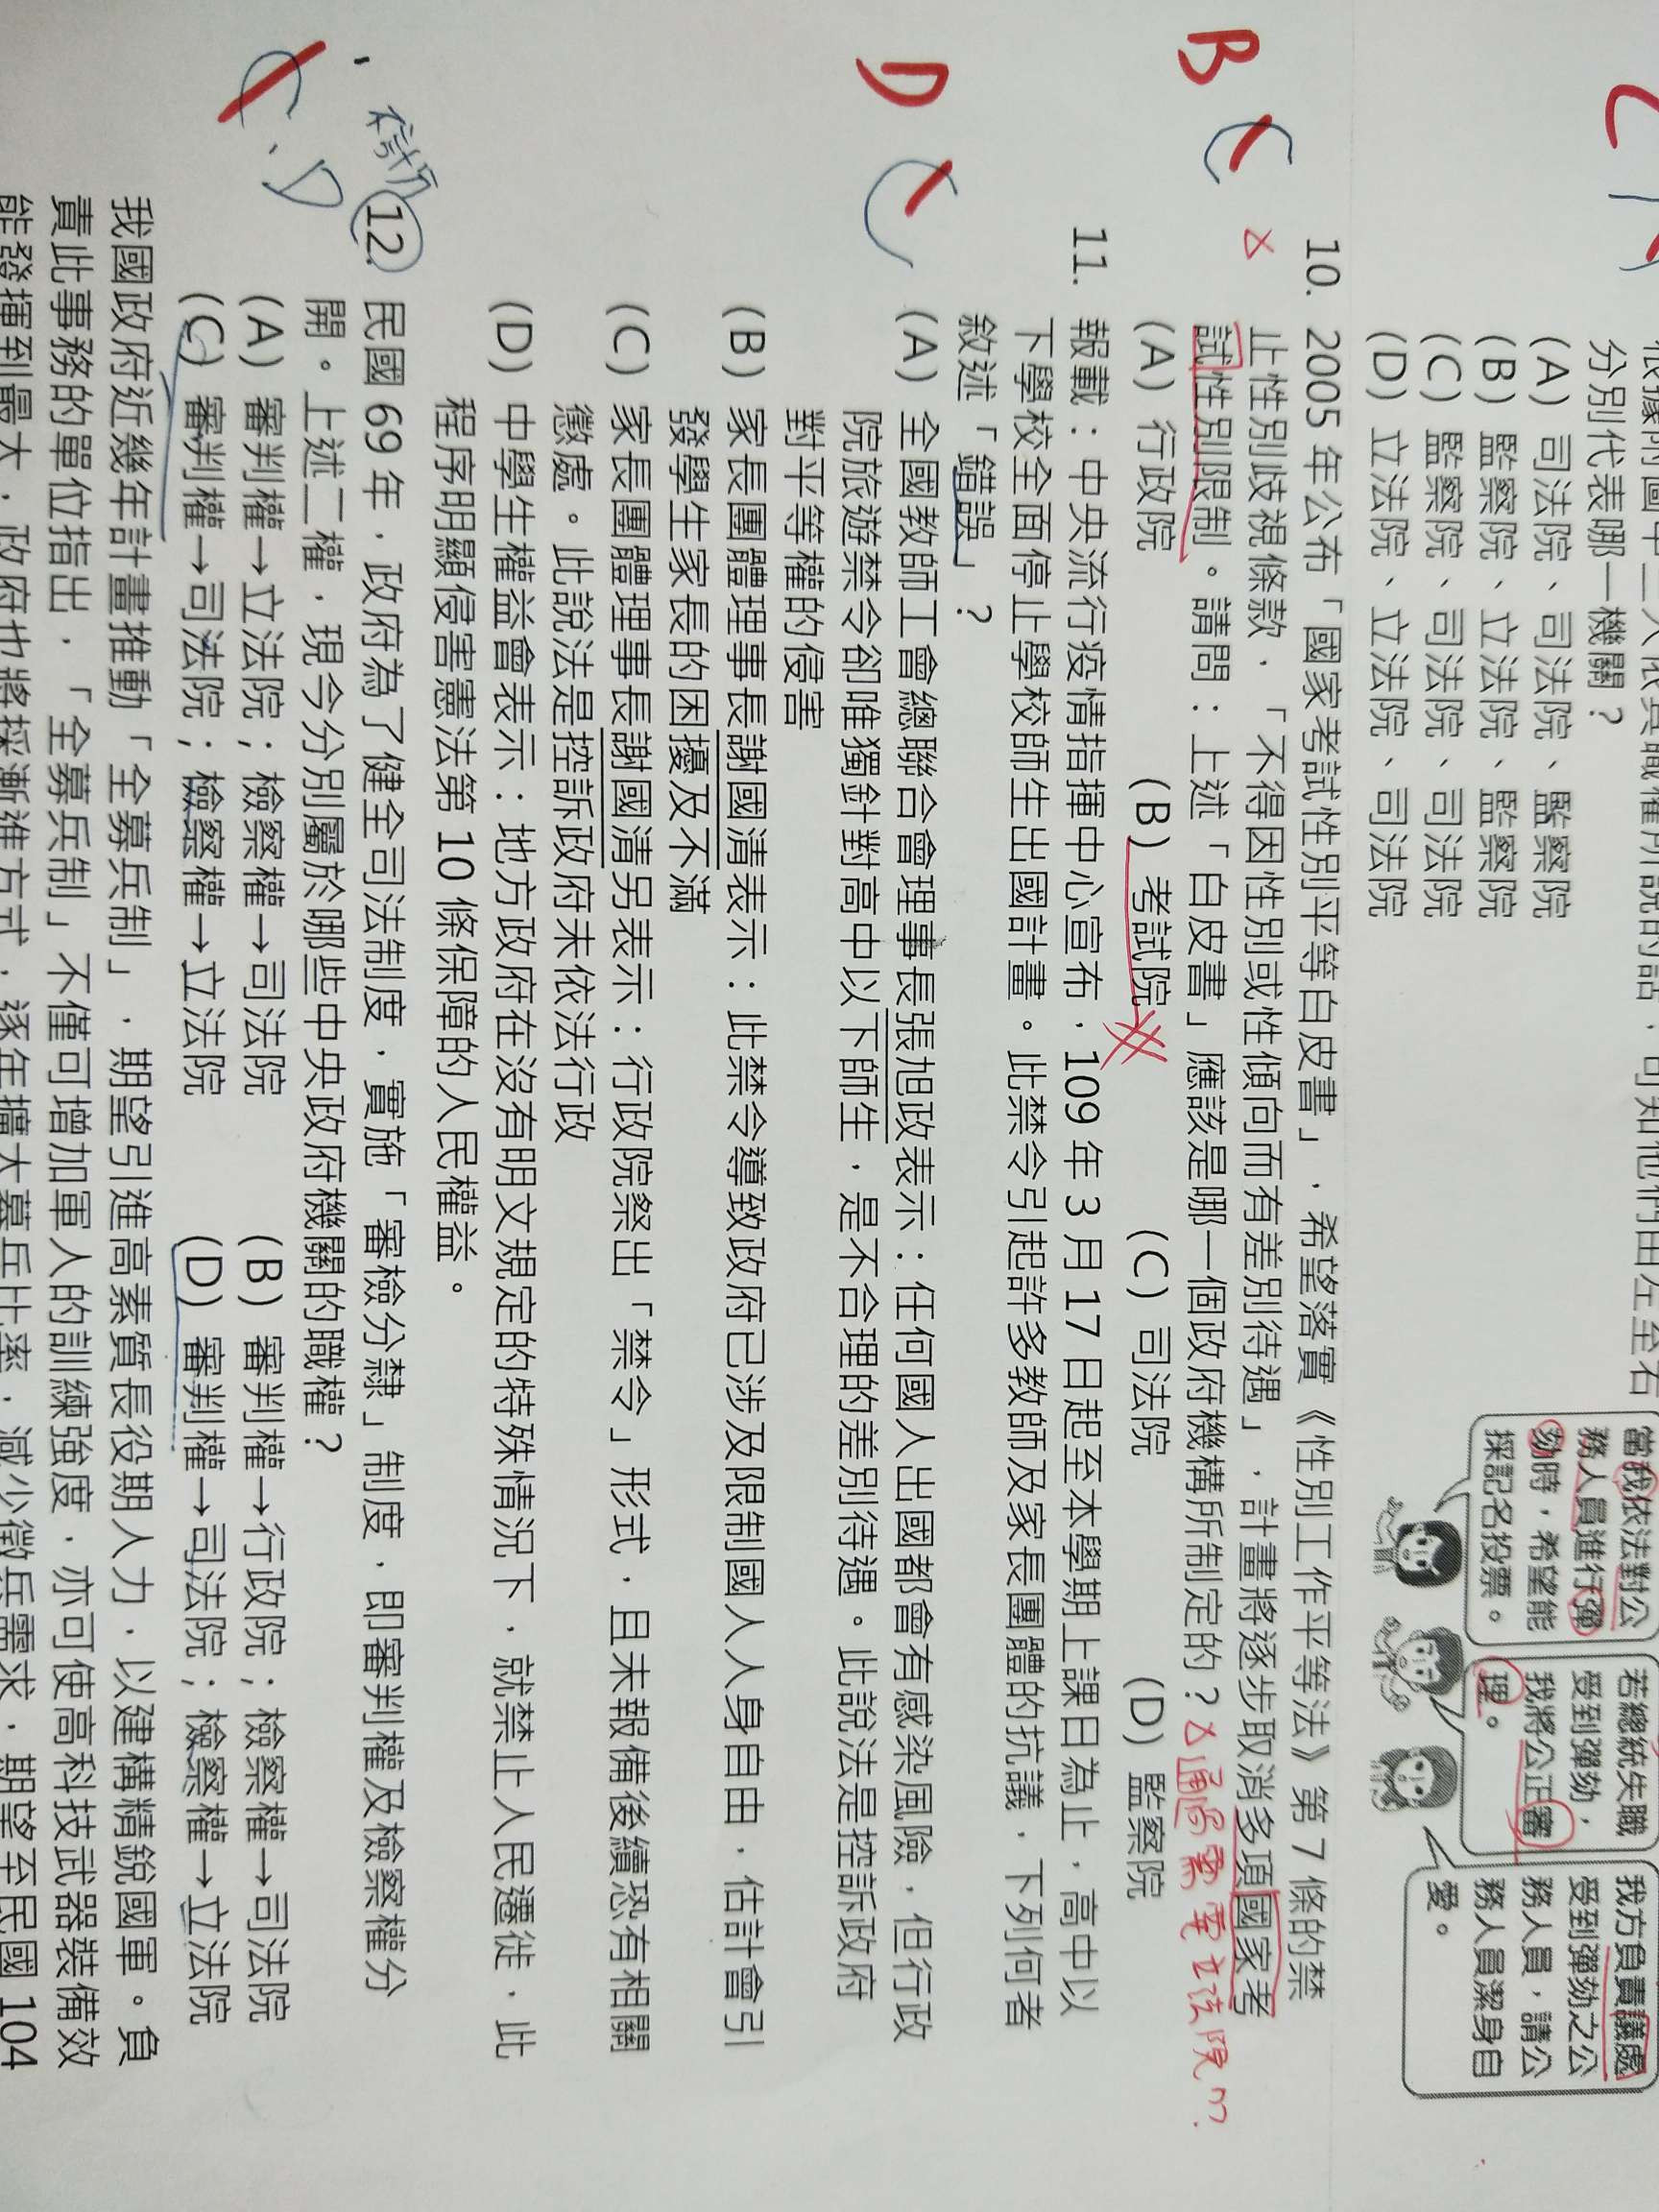 分別代表哪一機關？
(A) 司法院、司法院、監察院
(B) 監察院、立法院、監察院
(C) 監察院、司法院、司法院
(D) 立法院、立法院、司法院
當我依法對公
務人員進行彈
劾時，希望能
採記名投票。
若總統失職
受到彈劾，
我將公正審
理。
我方負責議處
受到彈劾之公
務人員，請公
務人員潔身自
愛。
B C
10. 2005 年公布「國家考試性別平等白皮書」，希望落實《性別工作平等法》第 7 條的禁
止性別歧視條款，「不得因性別或性傾向而有差別待遇」，計畫將逐步取消多項國家考
試性別限制。請問：上述「白皮書」應該是哪一個政府機構所制定的？通過需要立法院??
(A) 行政院 (B) 考試院 (C) 司法院 (D) 監察院
D C
11. 報載：中央流行疫情指揮中心宣布，109 年 3 月 17 日起至本學期上課日為止，高中以
下學校全面停止學校師生出國計畫。此禁令引起許多教師及家長團體的抗議，下列何者
敘述「錯誤」？
(A) 全國教師工會總聯合會理事長張旭政表示：任何國人出國都會有感染風險，但行政
院旅遊禁令卻唯獨針對高中以下師生，是不合理的差別待遇。此說法是控訴政府
對平等權的侵害
(B) 家長團體理事長謝國清表示：此禁令導致政府已涉及限制國人人身自由，估計會引
發學生家長的困擾及不滿
(C) 家長團體理事長謝國清另表示：行政院祭出「禁令」形式，且未報備後續恐有相關
懲處。此說法是控訴政府未依法行政
(D) 中學生權益會表示：地方政府在沒有明文規定的特殊情況下，就禁止人民遷徙，此
程序明顯侵害憲法第 10 條保障的人民權益。
不計分
C.D
12. 民國 69 年，政府為了健全司法制度，實施「審檢分隸」制度，即審判權及檢察權分
開。上述二權，現今分別屬於哪些中央政府機關的職權？
(A) 審判權→立法院；檢察權→司法院 (B) 審判權→行政院；檢察權→司法院
(C) 審判權→司法院；檢察權→立法院 (D) 審判權→司法院；檢察權→立法院
我國政府近幾年計畫推動「全募兵制」，期望引進高素質長役期人力，以建構精銳國軍。負
責此事務的單位指出，「全募兵制」不僅可增加軍人的訓練強度，亦可使高科技武器裝備效
能發揮到最大，政府也將採漸進方式，逐年擴大募兵比率，減少徵兵需求，期望至民國 104